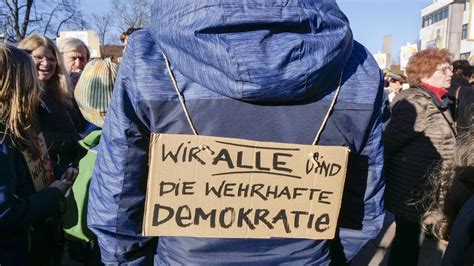 WIR ALLE UND
DIE WEHRHAFTE
DEMOKRATIE